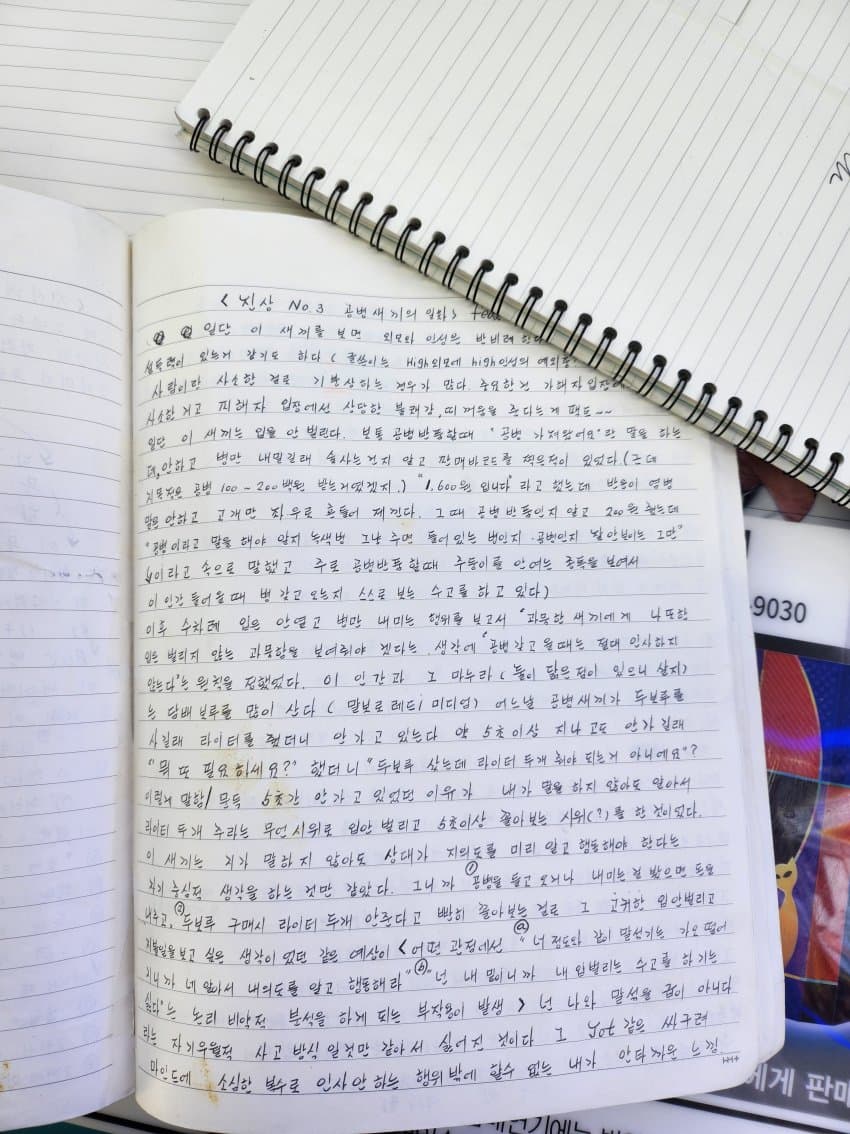 < 진상 No.3 공병새끼의 일화>
일단 이 새끼를 보면 외모와 인성은 반비례 한다
설득력이 있는거 같기도 하다 ( 글쓴이는 High외모에 high인성의 예외
사람이란 사소한 걸로 기분상하는 경우가 많다. 중요한건 가해자입장에
사소한거고 피해자 입장에선 상당한 불쾌감, 띠꺼움을 준다는게 팩트~~
일단 이 새끼는 입을 안 벌린다. 보통 공병반품할때 "공병 가져왔어요"란 말을 하는
데, 안하고 병만 내밀길래 술사는건지 알고 판매바코드를 찍은적이 있었다.(근데
공병 100~200백원 받는거였겠지.) "1,600원 입니다" 라고 했는데 반응이
말은 안하고 고개만 좌우로 흔들어 제낀다. 그때 공병반품인지 알고 200원 줬는데
"공병이라고 말을 해야 알지 녹색병 그냥 주면 들어있는 병인지 공병인지 잘 안보이는
이라고 속으로 말했고 주로 공병반품할때 주둥이를 안여는 종특을 보여서
이 인간 들어올때 병 갖고 오는지 스스로 보는 수고를 하고 있다)
이후 수차례 입은 안열고 병만 내미는 행위를 보고서 "과묵한 새끼에게 나또한
입을 벌리지 않는 과묵함을 보여줘야 겠다는 생각에 "공병갖고 올때는 절대 인사하지
않는다"는 원칙을 정했었다. 이 인간과 그 마누라 ( 둘이 닮은점이 있으니 살지)
는 담배 보루를 많이 산다 ( 말보로 레드 미디엄) 어느날 공병새끼가 두보루를
사길래 라이터를 줬더니 안가고 있는다 약 5초이상 지나고도 안가길래
"뭐 또 필요하세요?" 했더니 "두보루 샀는데 라이터 두개 줘야 되는거 아니에요"?
이렇게 말함/ 문득 5초간 안가고 있었던 이유가 내가 말을 하지 않아도 알아서
라이터 두개 주라는 무언시위로 입안 벌리고 5초이상 꼴아보는 시위(?)를 한 것이었다.
이 새끼는 지가 말하지 않아도 상대가 지의도를 미리 알고 행동해야 한다는
자기 중심적 생각을 하는 것만 같았다. 그니까 ①공병을 들고 오거나 내미는걸 봤으면 돈을
내주고, ②두보루 구매시 라이터 두개 안준다고 빤히 꼴아보는 걸로 그 고귀한 입안벌리고
지볼일을보고 싶은 생각이 있던 같은 예상이 < 어떤 관점에선 ⓐ"너 정도와 같이 말섞기는 가오 떨어
지니까 네 알아서 내의도를 알고 행동해라" ⓑ"넌 내 밑이니까 내 입벌리는 수고를 하기는
싫다"는 논리 비약적 분석을 하게 되는 부작용이 발생 > 넌 나와 말섞을 급이 아니다
라는 자기우월적 사고 방식 일것만 같아서 싫어진 것이다 그 Jot 같은 싸구려
마인드에 소심한 복수로 인사안하는 행위밖에 할수 없는 내가 안타까운 느낌
-9030
에게 판매